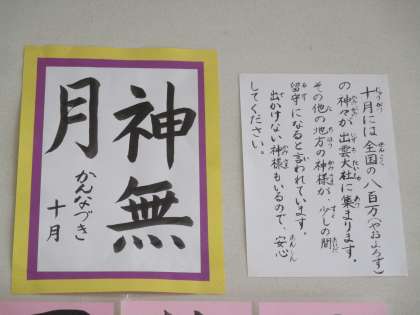 神無
月
かんなづき
十月
十月には全国の八百万(やおよろず)
の神々が出雲大社に集まります。
その他の地方の神様が、少しの間
留守になると言われています。
出かけない神様もいるので、安心
してください。